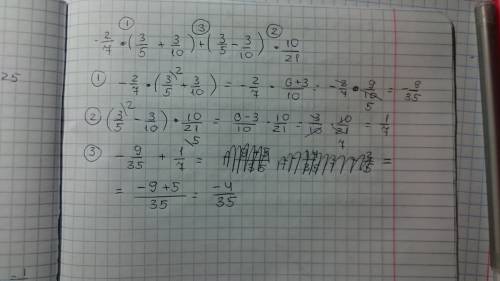 25
① ③ ②
-2/7 • (3/5 + 3/10) + (3/5 - 3/10) • 10/21
① -2/7 • (3/5\2 + 3/10) = -2/7 • 6+3/10 = -2/7 • 9/10 5 = -9/35
② (3/5\2 - 3/10) • 10/21 = 6-3/10 • 10/21 = 3/10 • 10/21 7 = 1/7
③ -9/35 + 1/7\5 = =
= -9+5/35 = -4/35